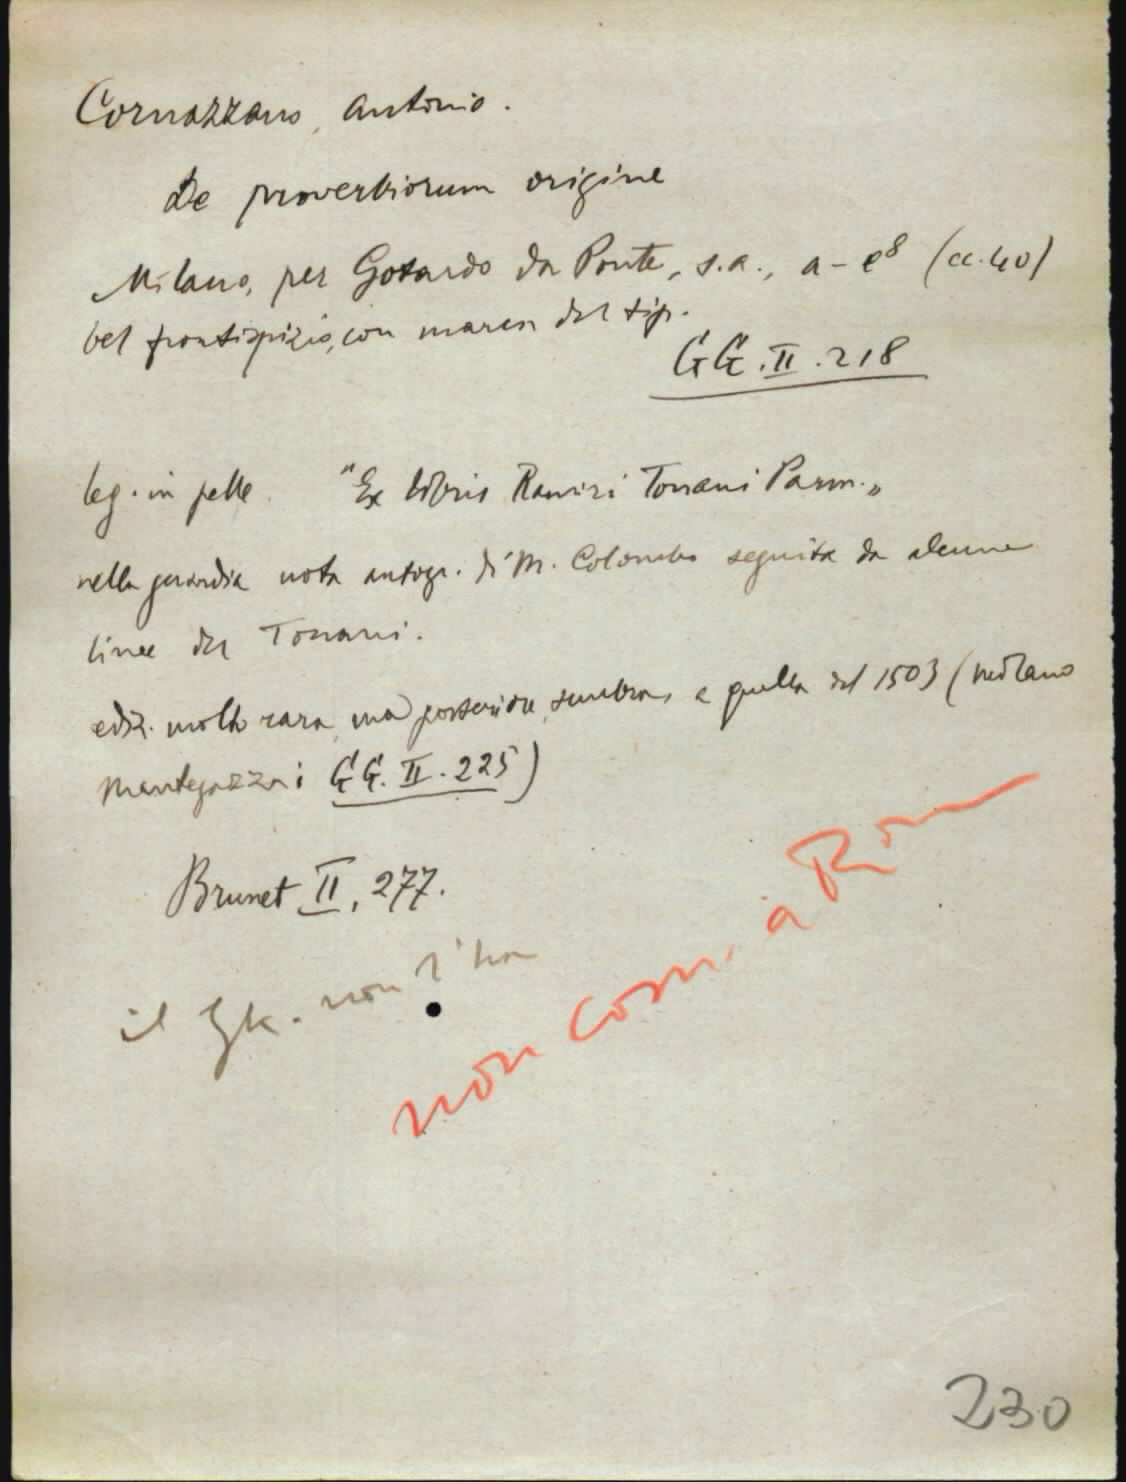 Cornazzano, Antonio.
De proverbiorum origine
Milano, per Gotardo da Ponte, s.a., a-e8 (cc. 40)
bel frontispizio, con marca del tip.
GG.II.218
leg. in pelle. "Ex libris Raniri Tonani Parm."
nella guardia nota autogr. di M. Colombo seguita da alcune
linee del Tonani.
ediz. molto rara, ma posteriore, sembra, a quella del 1503 (Milano
Mantegazza: GG.II.225)
Brunet II, 277.
il Gk. non l'ha
non com. a Rom
230